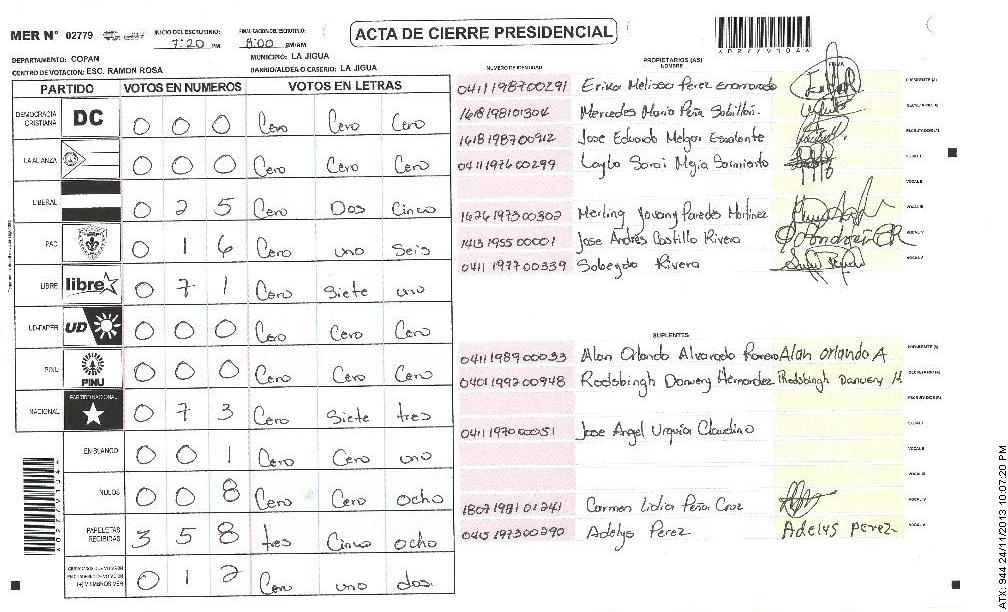 MER N° 02779
INICIO DEL ESCRUTINIO: 7:20 PM
FINALIZACION DEL ESCRUTINIO: 8:00 PM/AM
ACTA DE CIERRE PRESIDENCIAL
*02779104*
DEPARTAMENTO: COPAN
MUNICIPIO: LA JIGUA
CENTRO DE VOTACION: ESC. RAMON ROSA
BARRIO/ALDEA O CASERIO: LA JIGUA
PARTIDO VOTOS EN NUMEROS VOTOS EN LETRAS
DEMOCRACIA CRISTIANA DC 0 0 0 Cero Cero Cero
LA ALIANZA 0 0 0 Cero Cero Cero
LIBERAL 0 2 5 Cero Dos Cinco
PAC 0 1 6 Cero uno Seis
LIBRE libre 0 7 1 Cero Siete uno
UD-FAPER UD 0 0 0 Cero Cero Cero
PINU PINU 0 0 0 Cero Cero Cero
NACIONAL PARTIDO NACIONAL 0 7 3 Cero Siete tres
EN BLANCO 0 0 1 Cero Cero uno
NULOS 0 0 8 Cero Cero ocho
PAPELETAS RECIBIDAS 3 5 8 tres Cinco ocho
0 1 2 Cero uno dos
NUMERO DE IDENTIDAD
PROPIETARIOS (AS)
NOMBRE
FIRMA
0411198700291 Erika Melissa Perez enamorado PRESIDENTE (A)
1618198101304 Mercedes Maria Peña SECRETARIO (A)
1618198700912 Jose Eduardo Melgar Escalante ESCRUTADOR (A)
0411197600299 Layla Sarai Mejia Sarmiento VOCAL I
VOCAL II
1626197300302 Merling Jovany Paredes Martinez VOCAL III
1413195500001 Jose Andrés Castillo Rivera VOCAL IV
0411197700339 Rivera VOCAL V
SUPLENTES
0411198900033 Alan Orlando Alvarado Romero Alan orlando A PRESIDENTE (A)
0401199200948 Rodsbingh Danuery Hernandez Rodsbingh Danuery H. SECRETARIO (A)
ESCRUTADOR (A)
0411197000051 Jose Angel Urquia Claudino VOCAL I
VOCAL II
VOCAL III
1807198101241 Carmen Lidia Peña Cruz VOCAL IV
0415197300290 Adelys Perez Adelys perez VOCAL V
*02779104*
ATX: 944 24/11/2013 10:07:20 PM